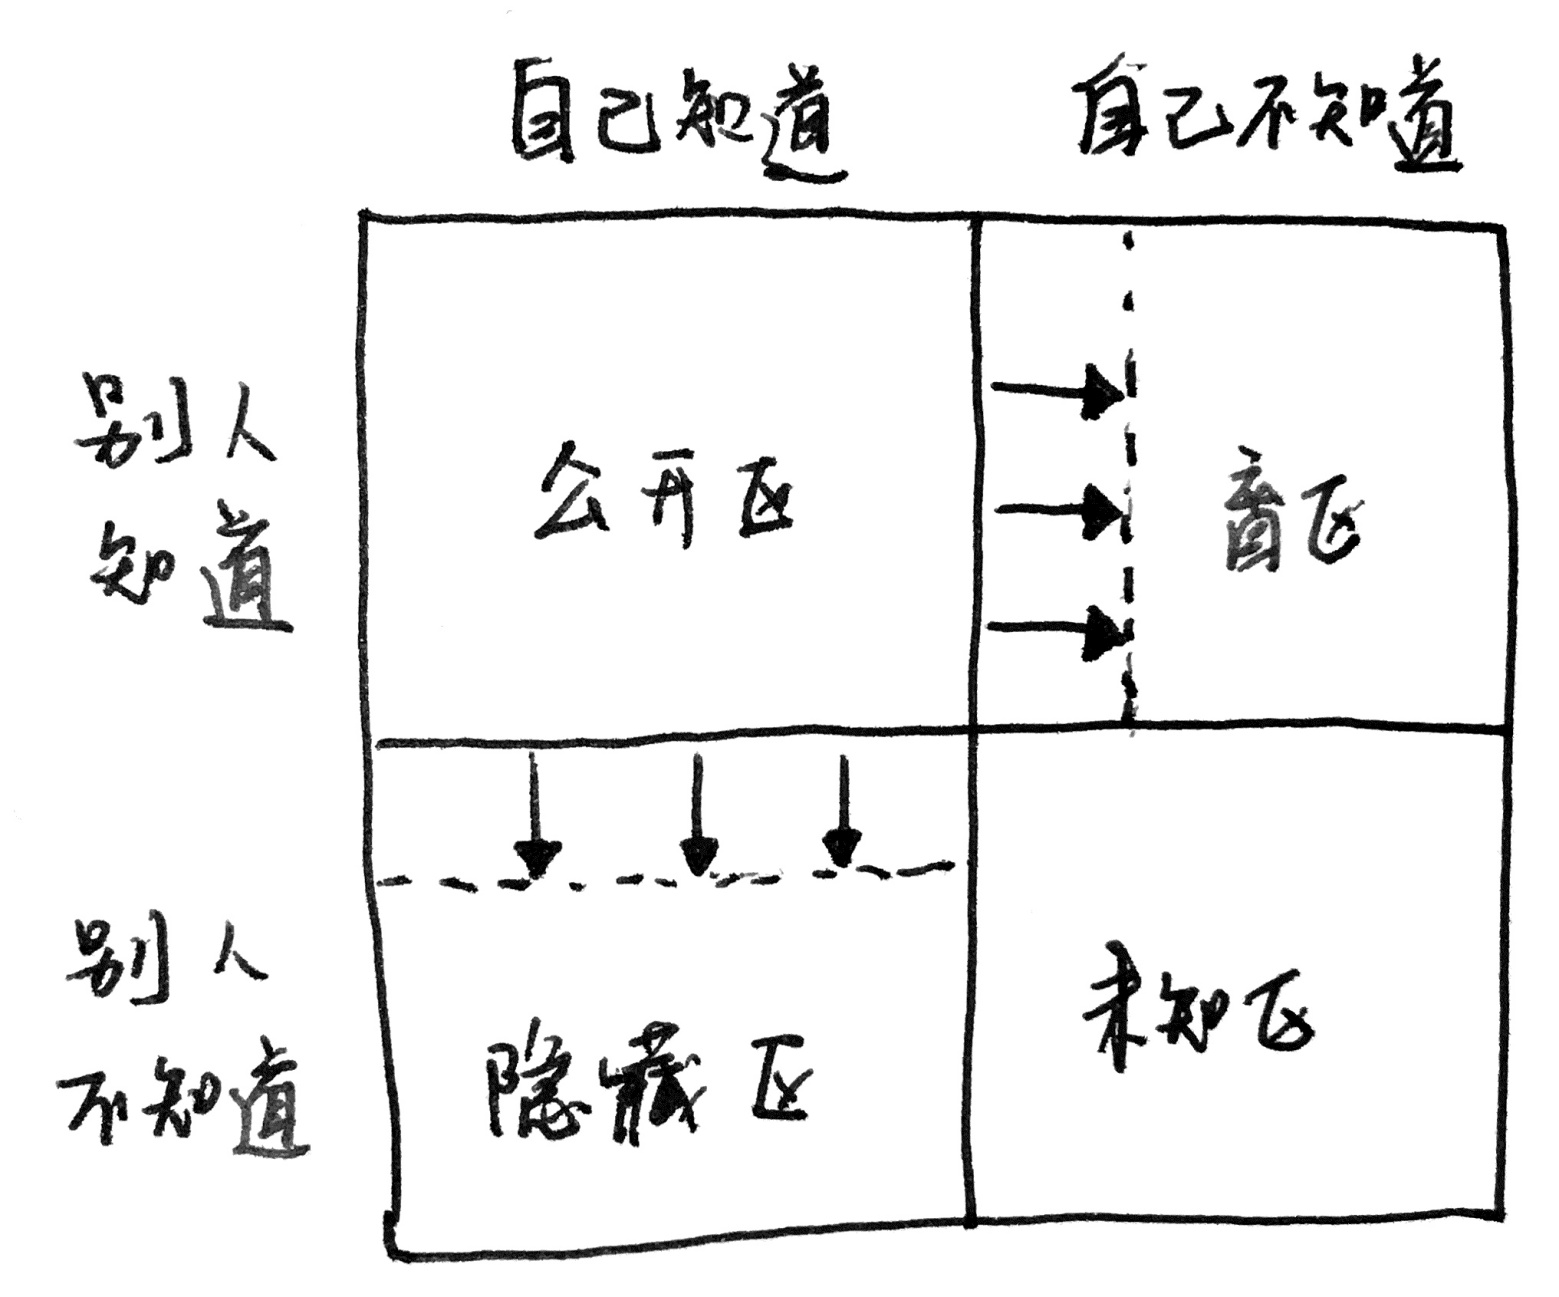 自己知道
自己不知道
别人
知道
公开区
盲区
别人
不知道
隐藏区
未知区